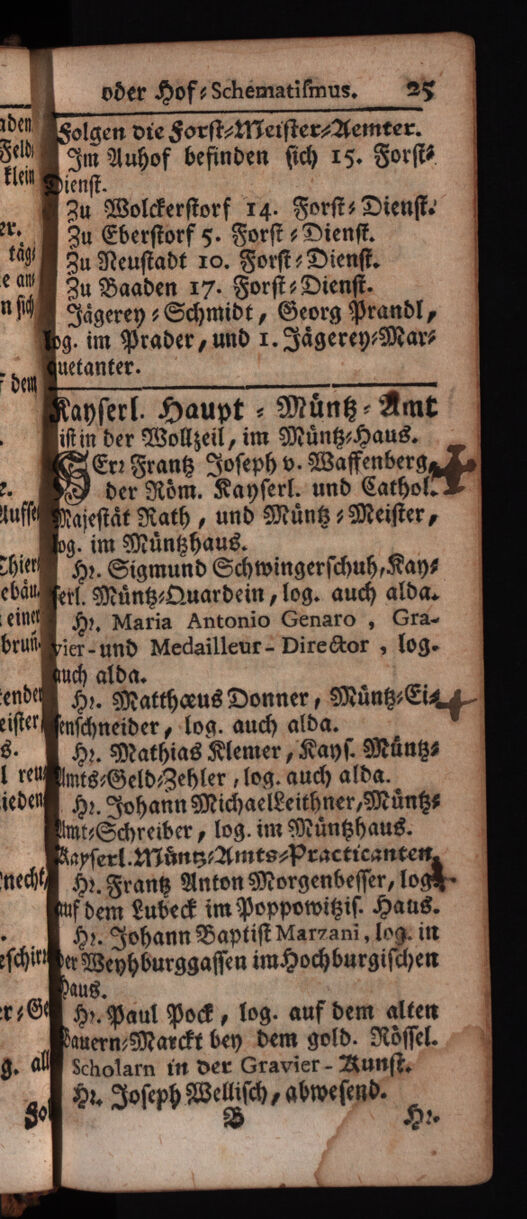 oder Hof-Schematismus. 25
Folgen die Forst-Meister-Aemter.
Im Auhof befinden sich 15. Forst-
Dienst.
Zu Wolckerstorf 14. Forst-Dienst.
Zu Eberstorf 5. Forst-Dienst.
Zu Neustadt 10. Forst-Dienst.
Zu Baaden 17. Forst-Dienst.
Jägerey-Schmidt, Georg Prandl,
log. im Prader, und 1. Jägerey-Mar-
quetanter.
Kayserl. Haupt-Müntz-Amt
ist in der Wollzeil, im Müntz-Haus.
HErr Frantz Joseph v. Waffenberg,
der Röm. Kayserl. und Cathol.
Majestät Rath, und Müntz-Meister,
log. im Müntzhaus.
Hr. Sigmund Schwingerschuh, Kay-
serl. Müntz-Quardein, log. auch alda.
Hr. Maria Antonio Genaro, Gra-
vier- und Medailleur-Director, log.
auch alda.
Hr. Matthæus Donner, Müntz-Ei-
senschneider, log. auch alda.
Hr. Mathias Klemer, Kays. Müntz-
Amts-Geld-Zehler, log. auch alda.
Hr. Johann Michael Leithner, Müntz-
Amt-Schreiber, log. im Müntzhaus.
Kayserl. Müntz-Amts-Practicanten.
Hr. Frantz Anton Morgenbesser, log.
auf dem Lubeck im Poppowitzis. Haus.
Hr. Johann Baptist Marzani, log. in
der Weyhburggassen im Hochburgischen
Haus.
Hr. Paul Pock, log. auf dem alten
Bauern-Marckt bey dem gold. Rössel.
Scholarn in der Gravier-Kunst.
Hr. Joseph Wellisch, abwesend.
B Hr.